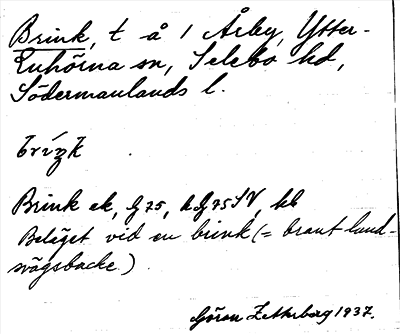 Brink, t å 1 Årby, Ytter-
Enhörna sn, Selebo hd,
Södermanlands l.
bríŋk
Brink ek, G75, hG75SV, hb
Beläget vid en brink (= brant land-
svägsbacke.)
Göran Zetterberg 1937.